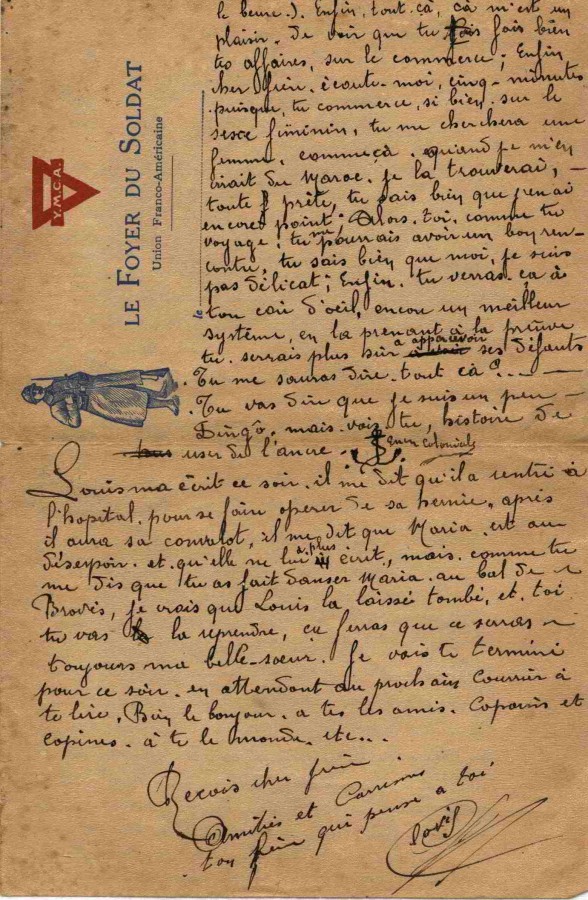 Y.M.C.A.
LE FOYER DU SOLDAT
Union Franco-Américaine
le
le beurre.). Enfin, tout, çà, çà m'est un
plaisir. De voir que tu fais bien
tes affaires, sur le commerce; Enfin
cher frère. écoute-moi, cinq-minutes
puisque, tu commerce, si bien. sur le
sesce feminin, tu me cherchera une
femme. commeçà. quand je m'en
irait du Maroc. je la trouverai, -
toute prête, tu sais bien que j'en ai
encore point; Alors. toi. comme tu
voyage. tu me pourrais avoir un bon ren-
contre, tu sais bien que moi, je suis
pas délicat; Enfin. tu verras çà à
ton coin d'oeil, encore un meilleur
système, en la prenant à la preuve
tu. serrais plus sûr a appercevoir ses défauts
. Tu me sauras dire. tout çà?... —
. Tu vas dire que je suis un peu -
Dingo. mais. vois, tu, histoire de
user de l'ancre. coloniale
Louis ma écrit ce soir. il me dit qu'il a rentré à
l'hopital. pour se faire operer de sa hernie,, après
il aura sa convalot, il me dit que Maria. est au
désespoir. et. qu'elle ne lui a plus écrit,, mais. comme tu
me dis que tu as fait danser Maria. au bal de
Brovès, je crais que Louis la laissé tombé, et. toi.
tu vas la reprendre, ça ferras que ce serras
toujours ma belle-soeur. Je vais te terminé
pour ce soir. en attendant au prochain courrier à
te lire. Bien le bonjour. a tes les amis. Copains et
copines. à te le monde. etc...
Recois cher frère
Amitiés et Carresses
ton frère qui pense a toi